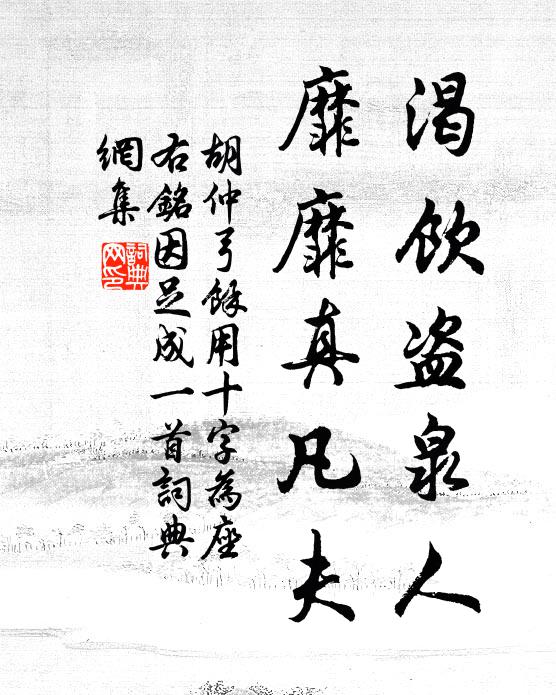 渴飲盗泉人
靡靡真凡夫
胡仲弓餘用十字為座
右銘因足成一首詞典
網集
詞典
网印